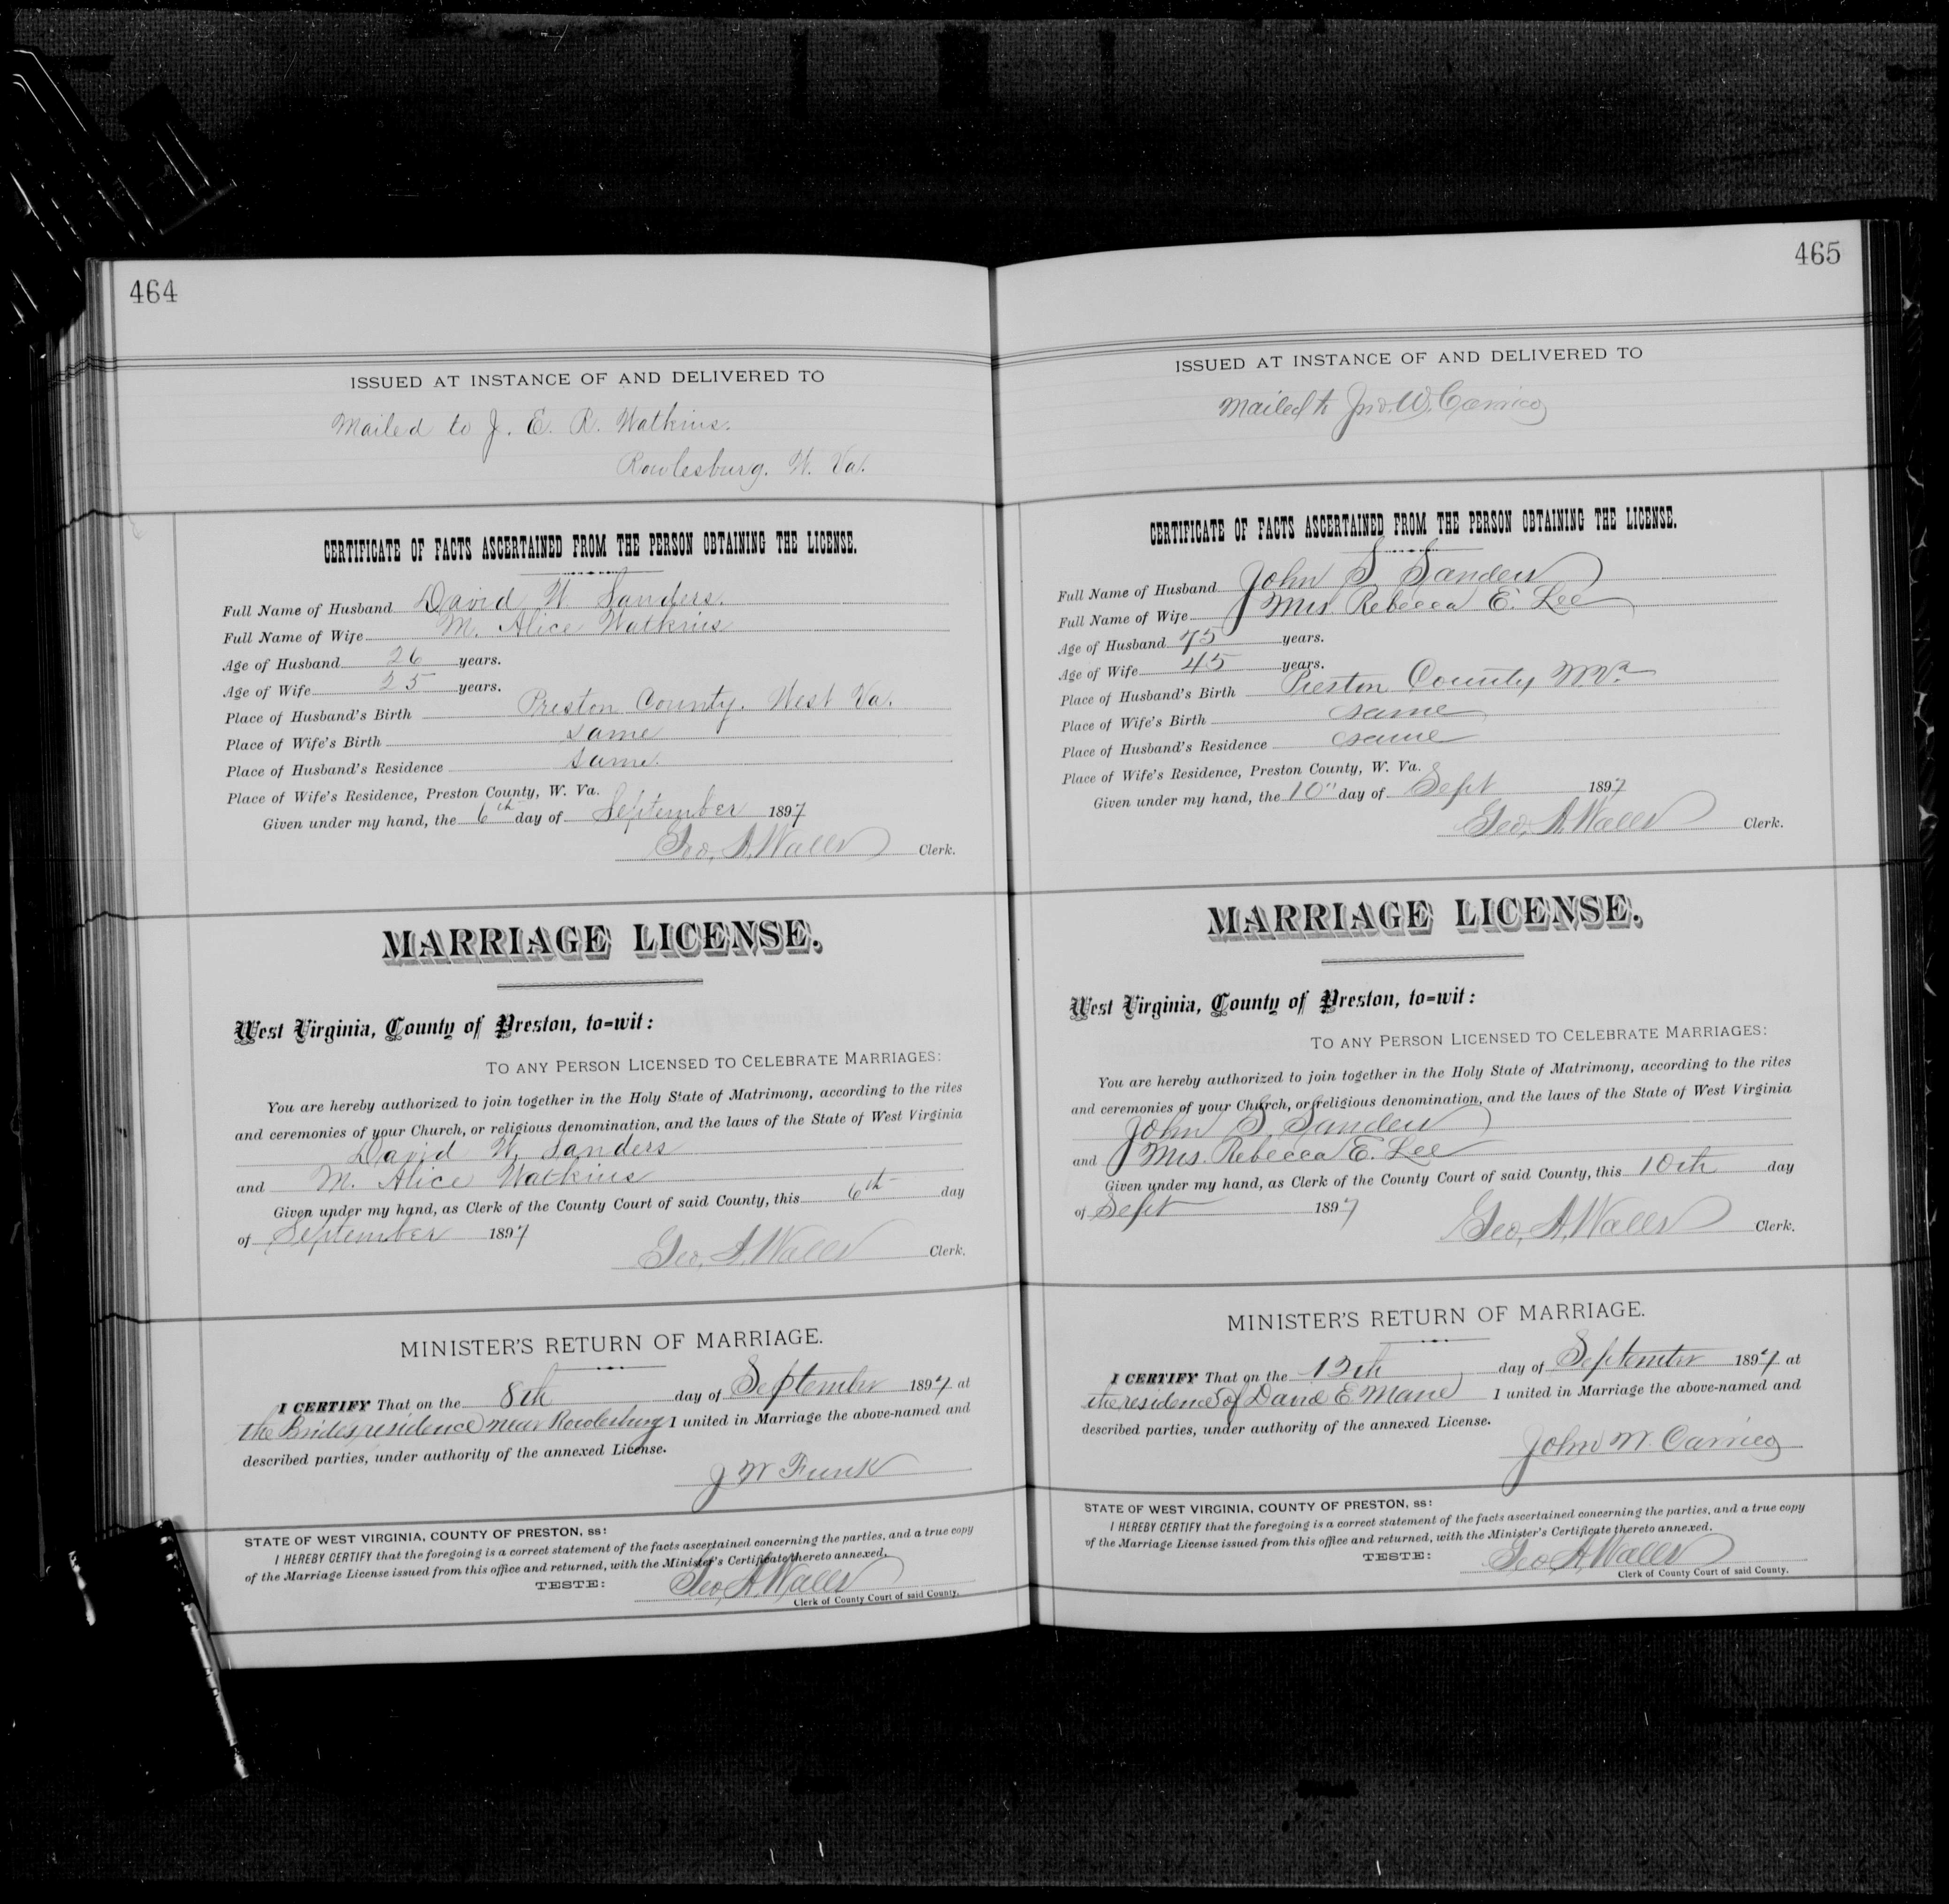 464
ISSUED AT INSTANCE OF AND DELIVERED TO
Mailed to J. E. R. Watkins.
Rowlesburg. W. Va.
CERTIFICATE OF FACTS ASCERTAINED FROM THE PERSON OBTAINING THE LICENSE.
Full Name of Husband David W. Sanders.
Full Name of Wife M. Alice Watkins
Age of Husband 26 years.
Age of Wife 25 years.
Place of Husband's Birth Preston County. West Va.
Place of Wife's Birth same
Place of Husband's Residence same.
Place of Wife's Residence, Preston County, W. Va.
Given under my hand, the 6th day of September 1897
Geo. A. Walls Clerk.
MARRIAGE LICENSE.
West Virginia, County of Preston, to=wit:
TO ANY PERSON LICENSED TO CELEBRATE MARRIAGES:
You are hereby authorized to join together in the Holy State of Matrimony, according to the rites
and ceremonies of your Church, or religious denomination, and the laws of the State of West Virginia
David W. Sanders
and M. Alice Watkins
Given under my hand, as Clerk of the County Court of said County, this 6th day
of September 1897
Geo. A. Walls Clerk.
MINISTER'S RETURN OF MARRIAGE.
I CERTIFY That on the 8th day of September 1897 at
the Brides residence near Rowlesburg I united in Marriage the above-named and
described parties, under authority of the annexed License.
J W Funk
STATE OF WEST VIRGINIA, COUNTY OF PRESTON, ss:
I HEREBY CERTIFY that the foregoing is a correct statement of the facts ascertained concerning the parties, and a true copy
of the Marriage License issued from this office and returned, with the Minister's Certificate thereto annexed.
TESTE: Geo. A. Walls
Clerk of County Court of said County.
465
ISSUED AT INSTANCE OF AND DELIVERED TO
Mailed to Jno. W. Carrico
CERTIFICATE OF FACTS ASCERTAINED FROM THE PERSON OBTAINING THE LICENSE.
Full Name of Husband John S Sanders
Full Name of Wife Mrs Rebecca E. Lee
Age of Husband 75 years.
Age of Wife 45 years.
Place of Husband's Birth Preston County WVa
Place of Wife's Birth same
Place of Husband's Residence same
Place of Wife's Residence, Preston County, W. Va.
Given under my hand, the 10" day of Sept 1897
Geo, A. Walls Clerk.
MARRIAGE LICENSE.
West Virginia, County of Preston, to=wit:
TO ANY PERSON LICENSED TO CELEBRATE MARRIAGES:
You are hereby authorized to join together in the Holy State of Matrimony, according to the rites
and ceremonies of your Church, or religious denomination, and the laws of the State of West Virginia
John S Sanders
and Mrs. Rebecca E. Lee
Given under my hand, as Clerk of the County Court of said County, this 10th day
of Sept 1897
Geo, A. Walls Clerk.
MINISTER'S RETURN OF MARRIAGE.
I CERTIFY That on the 12th day of September 1897 at
the residence of David E I united in Marriage the above-named and
described parties, under authority of the annexed License.
John W. Carrico
STATE OF WEST VIRGINIA, COUNTY OF PRESTON, ss:
I HEREBY CERTIFY that the foregoing is a correct statement of the facts ascertained concerning the parties, and a true copy
of the Marriage License issued from this office and returned, with the Minister's Certificate thereto annexed.
TESTE: Geo A. Walls
Clerk of County Court of said County.